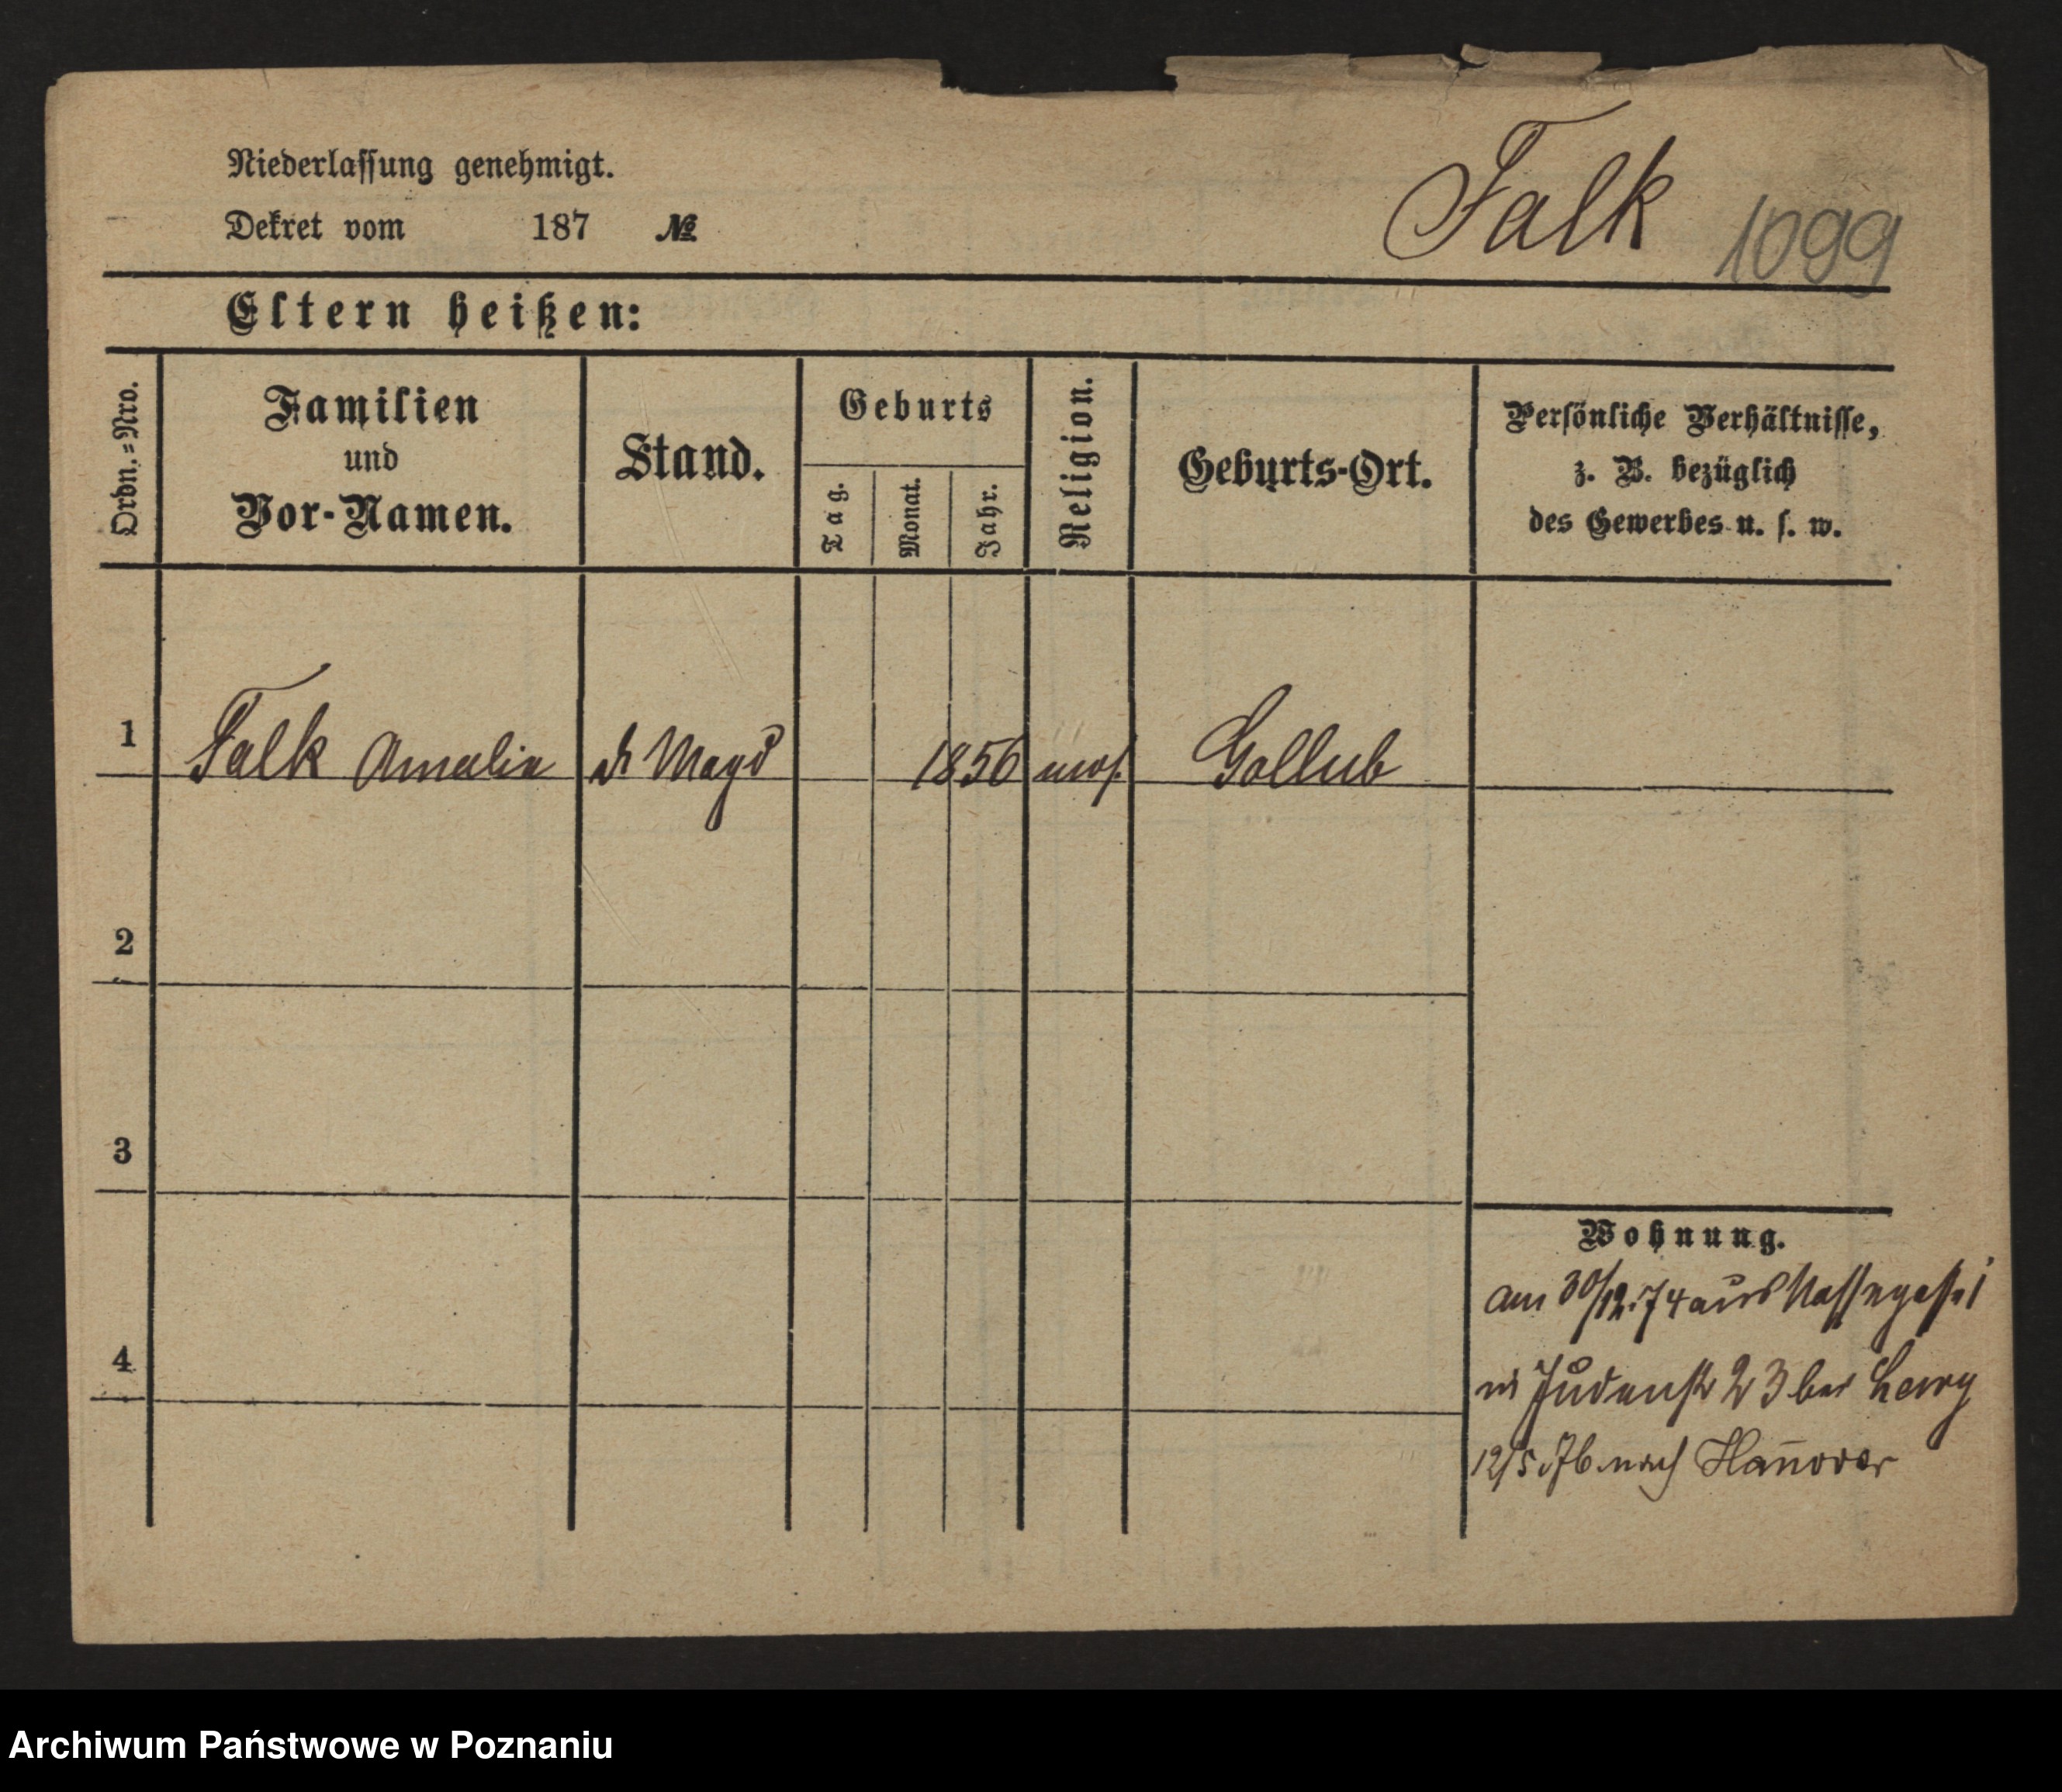 Niederlassung genehmigt.
Dekret vom 187 №
Falk 1099
Eltern heißen:
Ordn.-Nro.
Familien
und
Vor-Namen.
Stand.
Geburts
Tag.
Monat.
Jahr.
Religion.
Geburts-Ort.
Persönliche Verhältnisse,
z. B. bezüglich
des Gewerbes u. s. w.
1 Falk Amalie d Magd 1856 mos. Gollub
2
3
4
Wohnung.
am 30/12.74 aus Nassegasse 1
in Judenstr 23 bei Levy
12/5.76 nach Han̄over
Archiwum Państwowe w Poznaniu